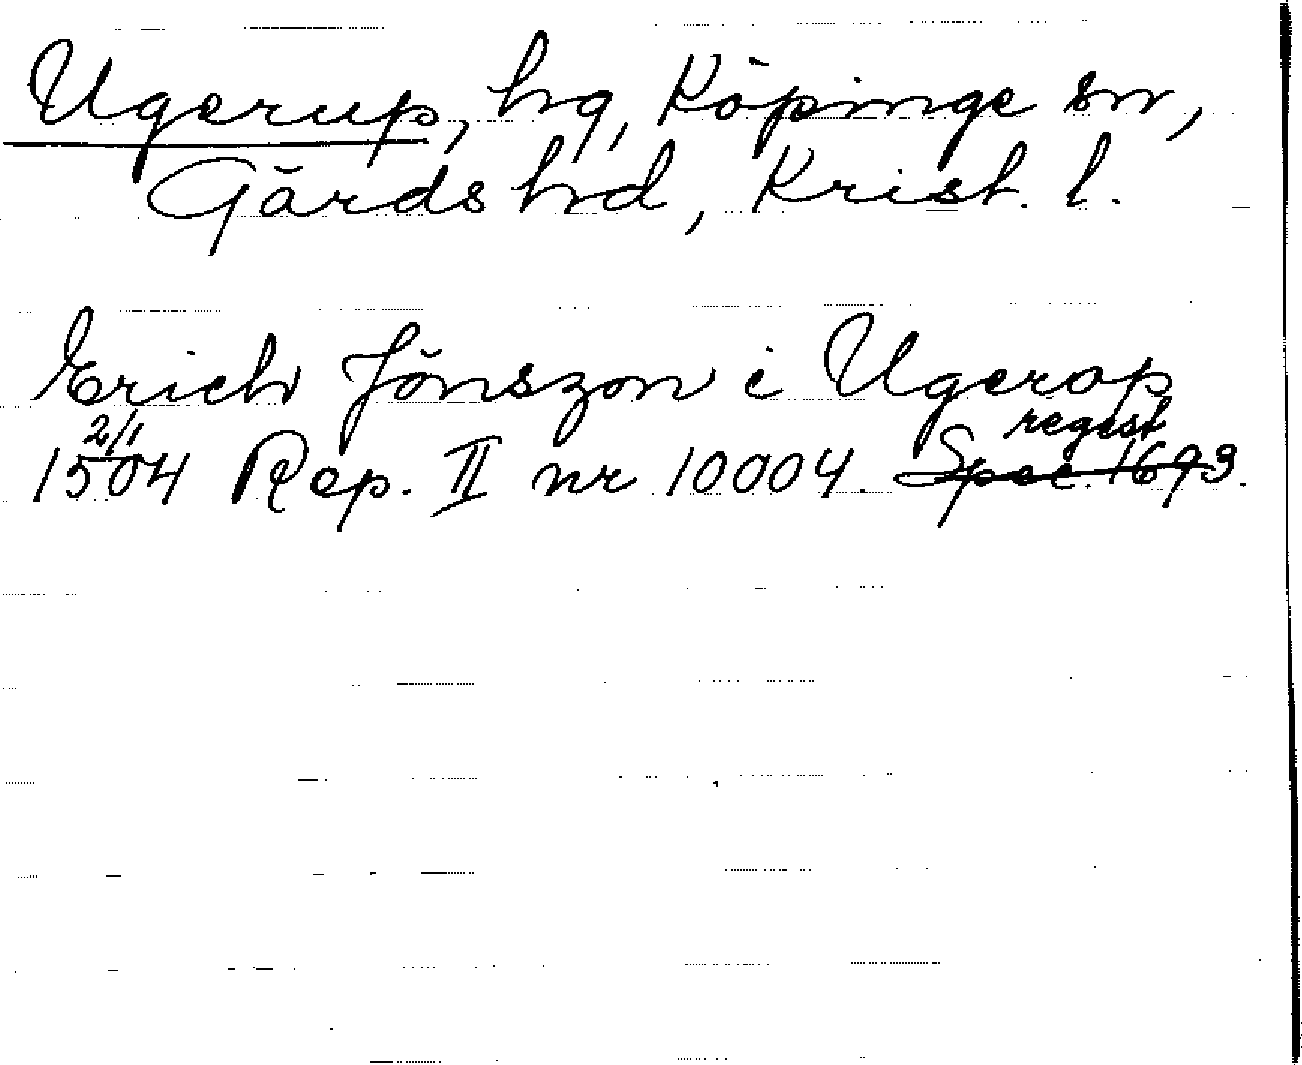 Ugerup, hg, Köpinge sn,
Gärds hd, Krist. l.
Erich Jönszon i Ugerop
2/1 regest
1504 Rep. II nr 10004. Spec. 1693.